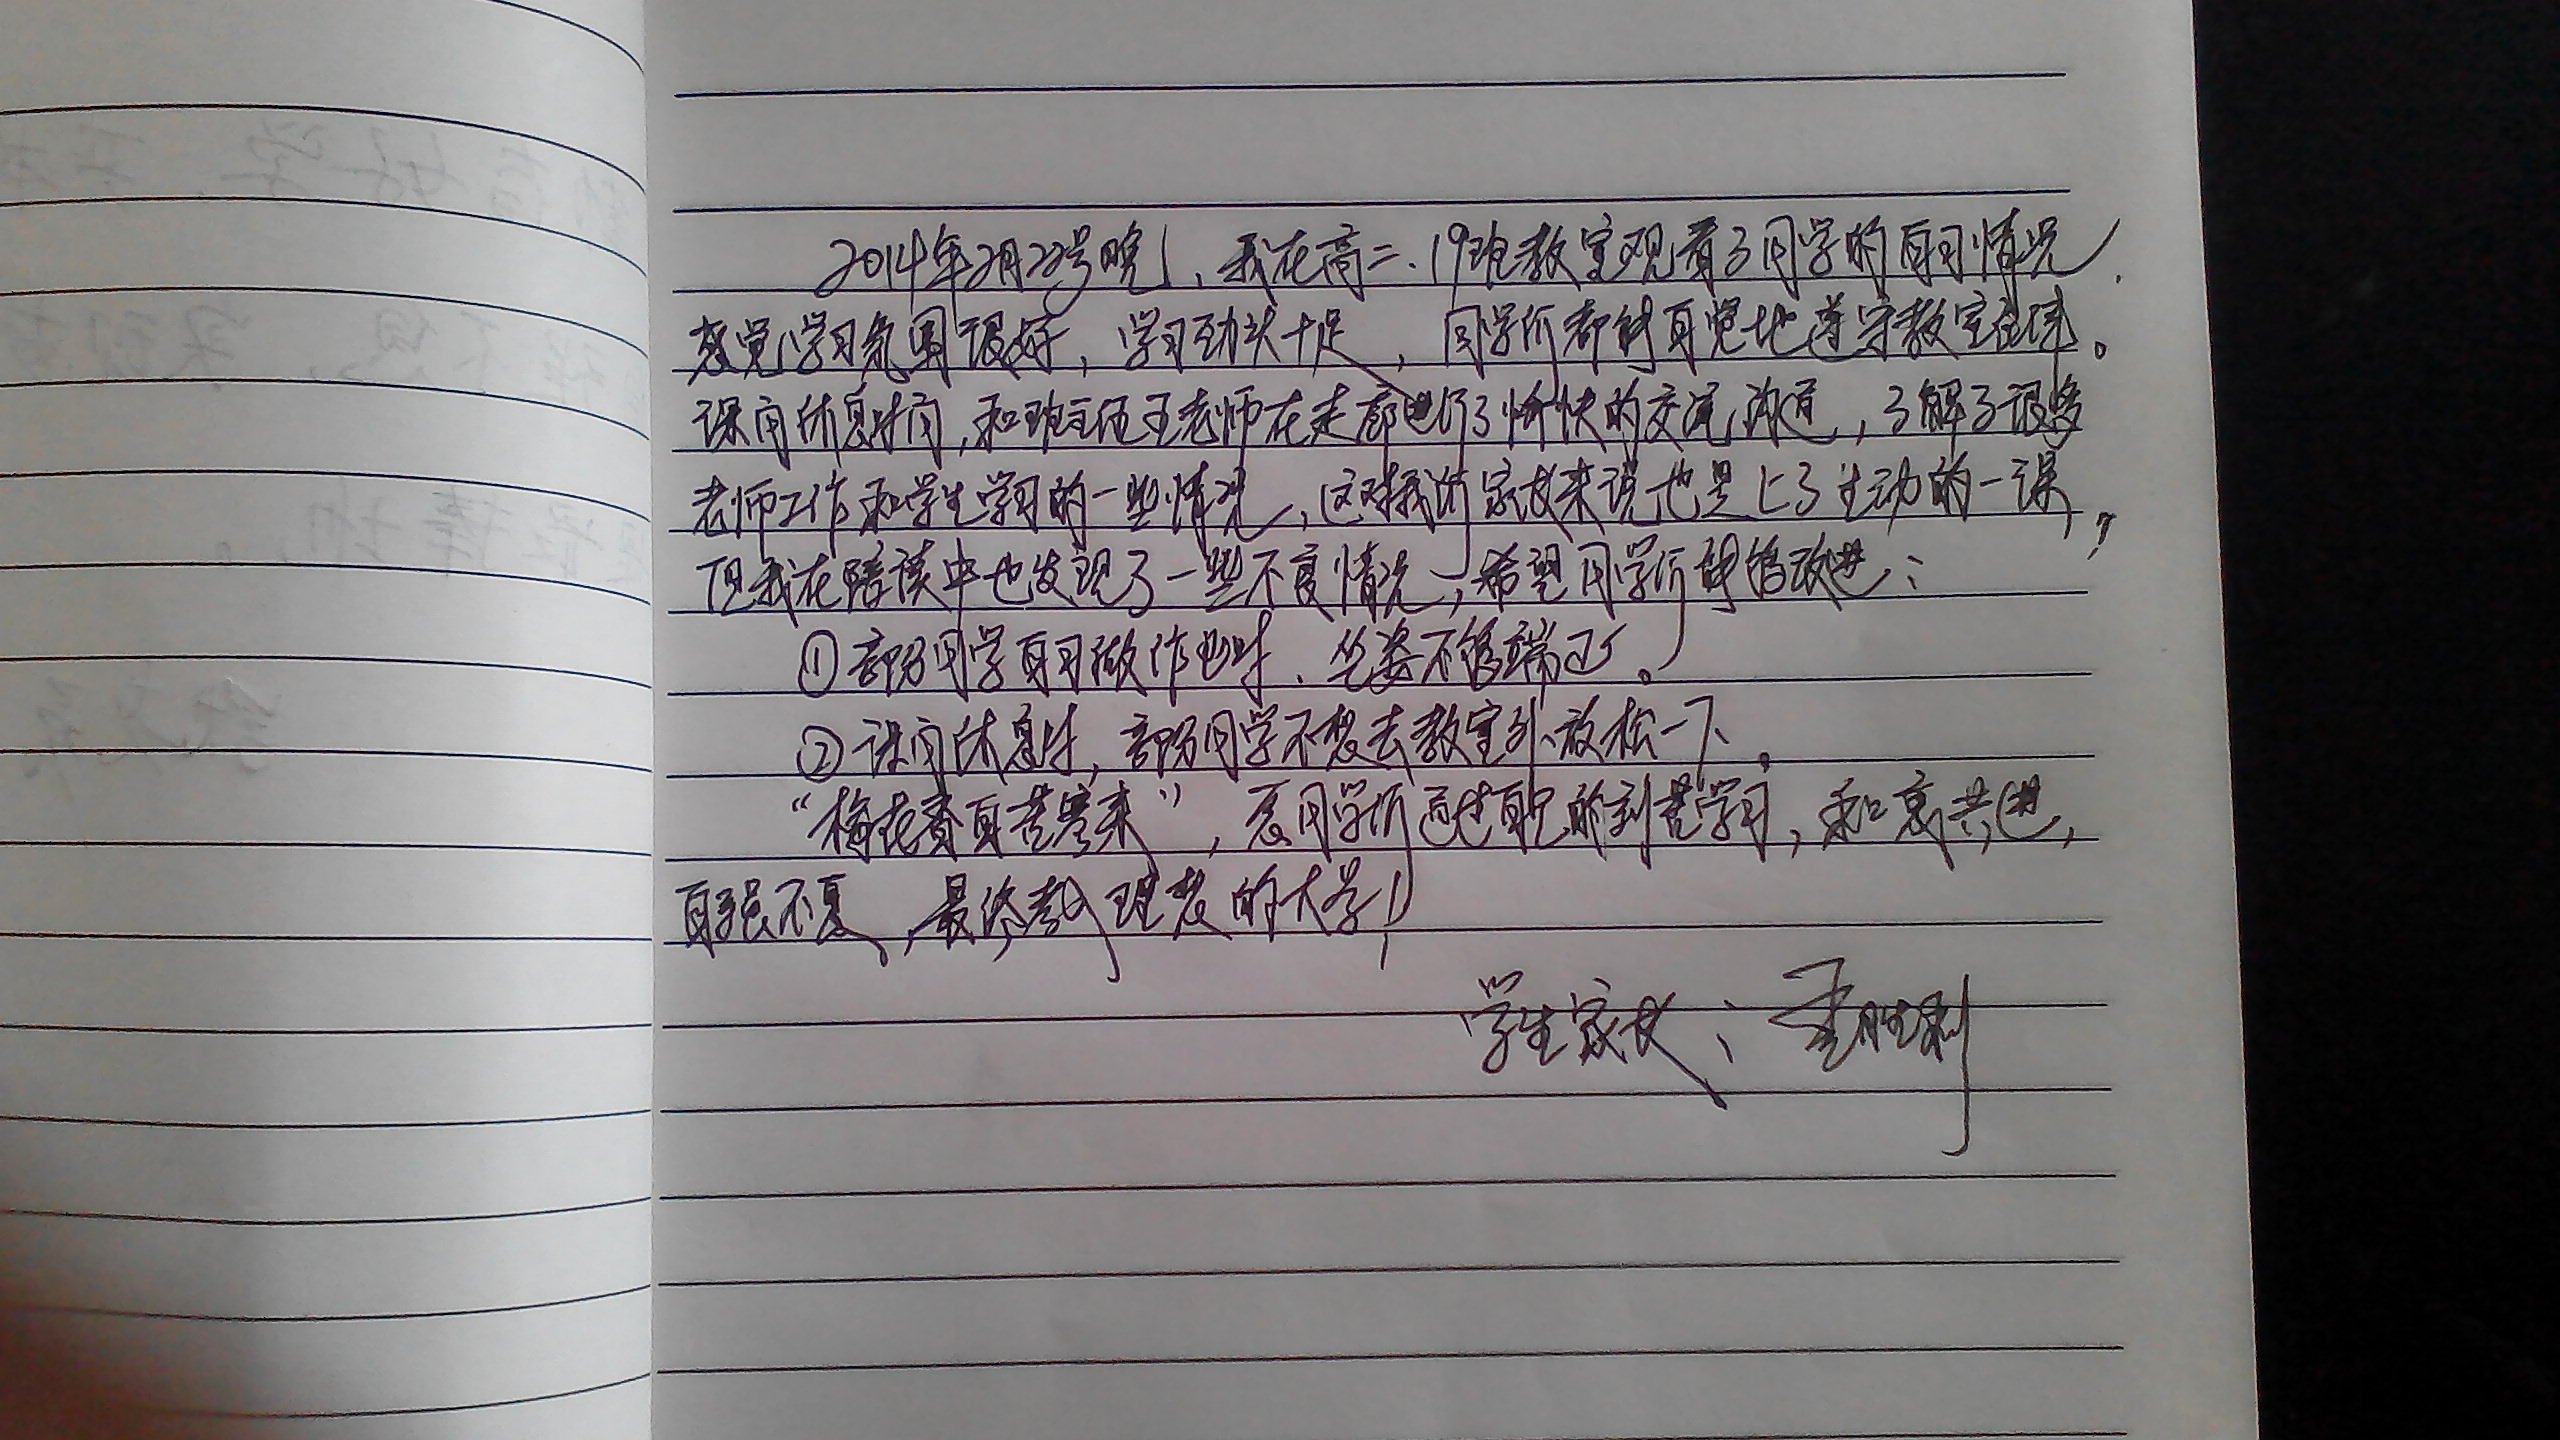 2014年2月22号晚,我在高二.19班教室观看了同学的自习情况.
感觉学习氛围很好,学习劲头十足,同学们都能自觉地遵守教室
课间休息时间,和班主任王老师在走廊进行了愉快的交流沟通,了解了很多
老师工作和学生学习的一些情况,这对我们家长来说也是上了生动的一课,
但我在陪读中也发现了一些不良情况,希望同学们能够改进:
①部分同学自习做作业时、坐姿不够端正。
②课间休息时,部分同学不想去教室外放松一下。
“梅花香自苦寒来”,愿同学们通过自己的刻苦学习,和衷共进,
自强不息,最终考入理想的大学!
学生家长: